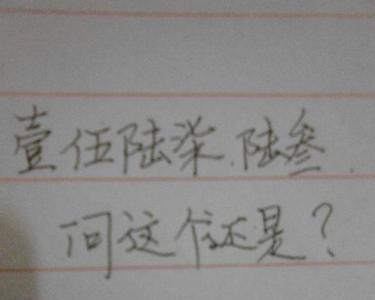 壹伍陆柒.陆叁.
问这个还是？